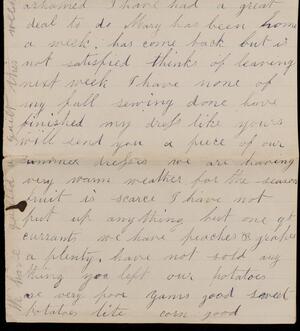 ashamed I have had a great
deal to do Mary has been home
a week has come back but is
not satisfied thinks of leaving
next week I have none of
my fall sewing done have
finished my dress like yours
will send you a piece of our
summer dresses we are having
very warm weather for the season
fruit is scarce I have not
put up anything but one qt
currants we have peaches & grapes
a plenty have not sold any
thing you left our potatoes
are very poor yams good sweet
potatoes lite corn good
quilt this week